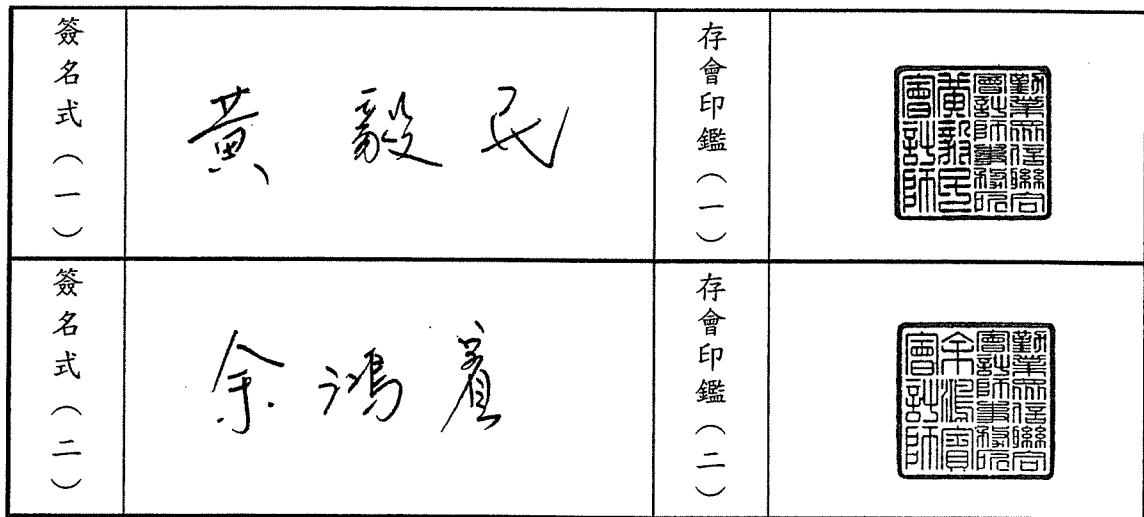 簽名式（一）
黃毅民
存會印鑑（一）
勤業眾信聯合
會計師事務所
黃毅民
會計師
簽名式（二）
余鴻賓
存會印鑑（二）
勤業眾信聯合
會計師事務所
余鴻賓
會計師